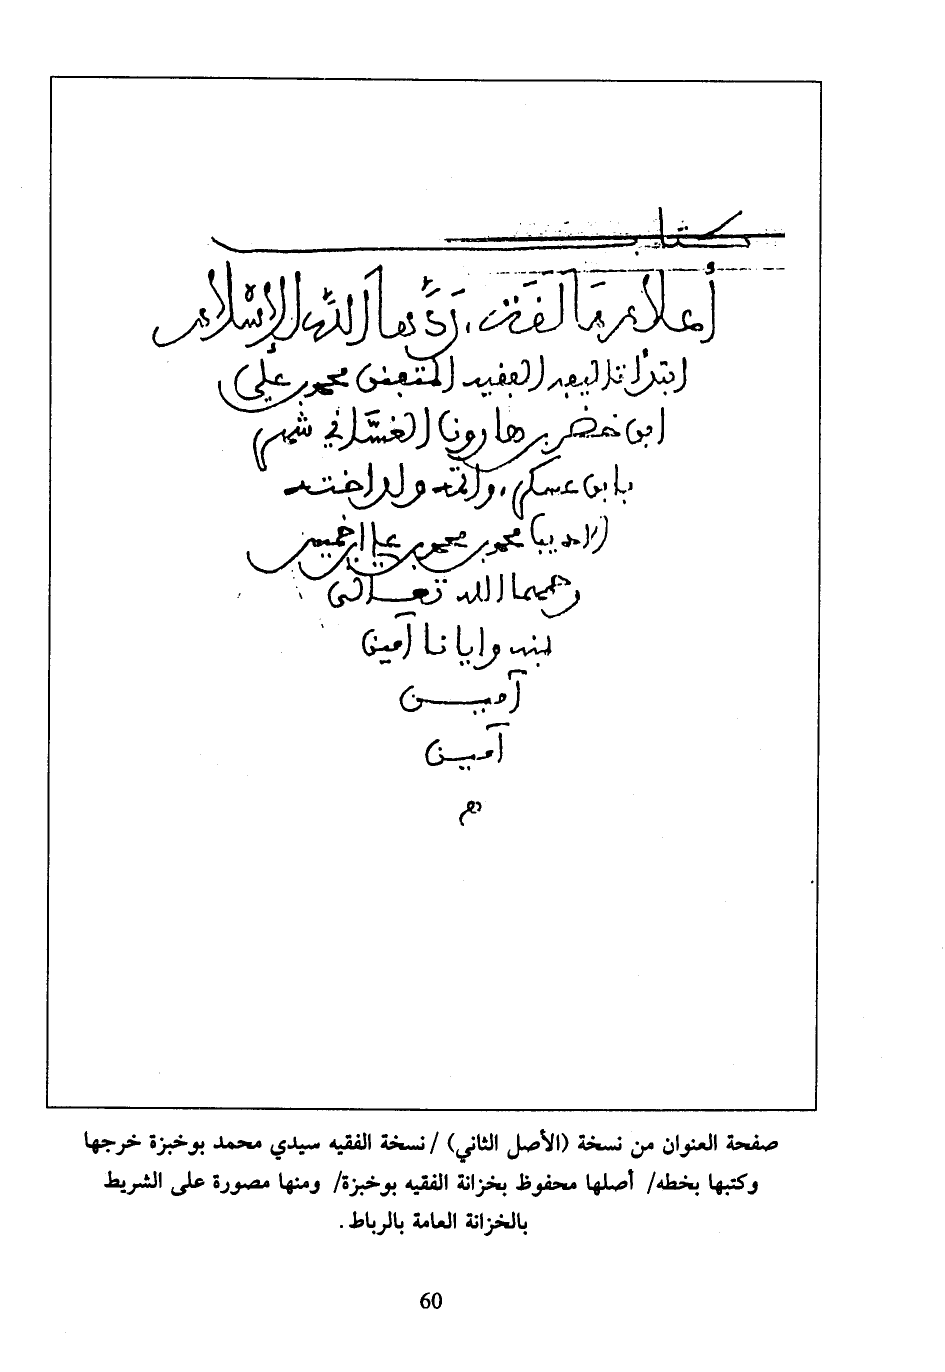 كتاب
أعلام مالقة، ردها الله للإسلام
ابتدأ تاليفه الفقيه المتفنن محمد بن علي
ابن خضر بن هارون الغساني شهر
بابن عسكر، وأتمه ولد اخته
الاديب محمد بن محمد بن علي ابن خميس
رحمهما الله تعالى
بمنه وايانا آمين
آميــن
آميـن
صفحة العنوان من نسخة (الأصل الثاني) / نسخة الفقيه سيدي محمد بوخبزة خرجها
وكتبها بخطه/ أصلها محفوظ بخزانة الفقيه بوخبزة/ ومنها مصورة على الشريط
بالخزانة العامة بالرباط.
60